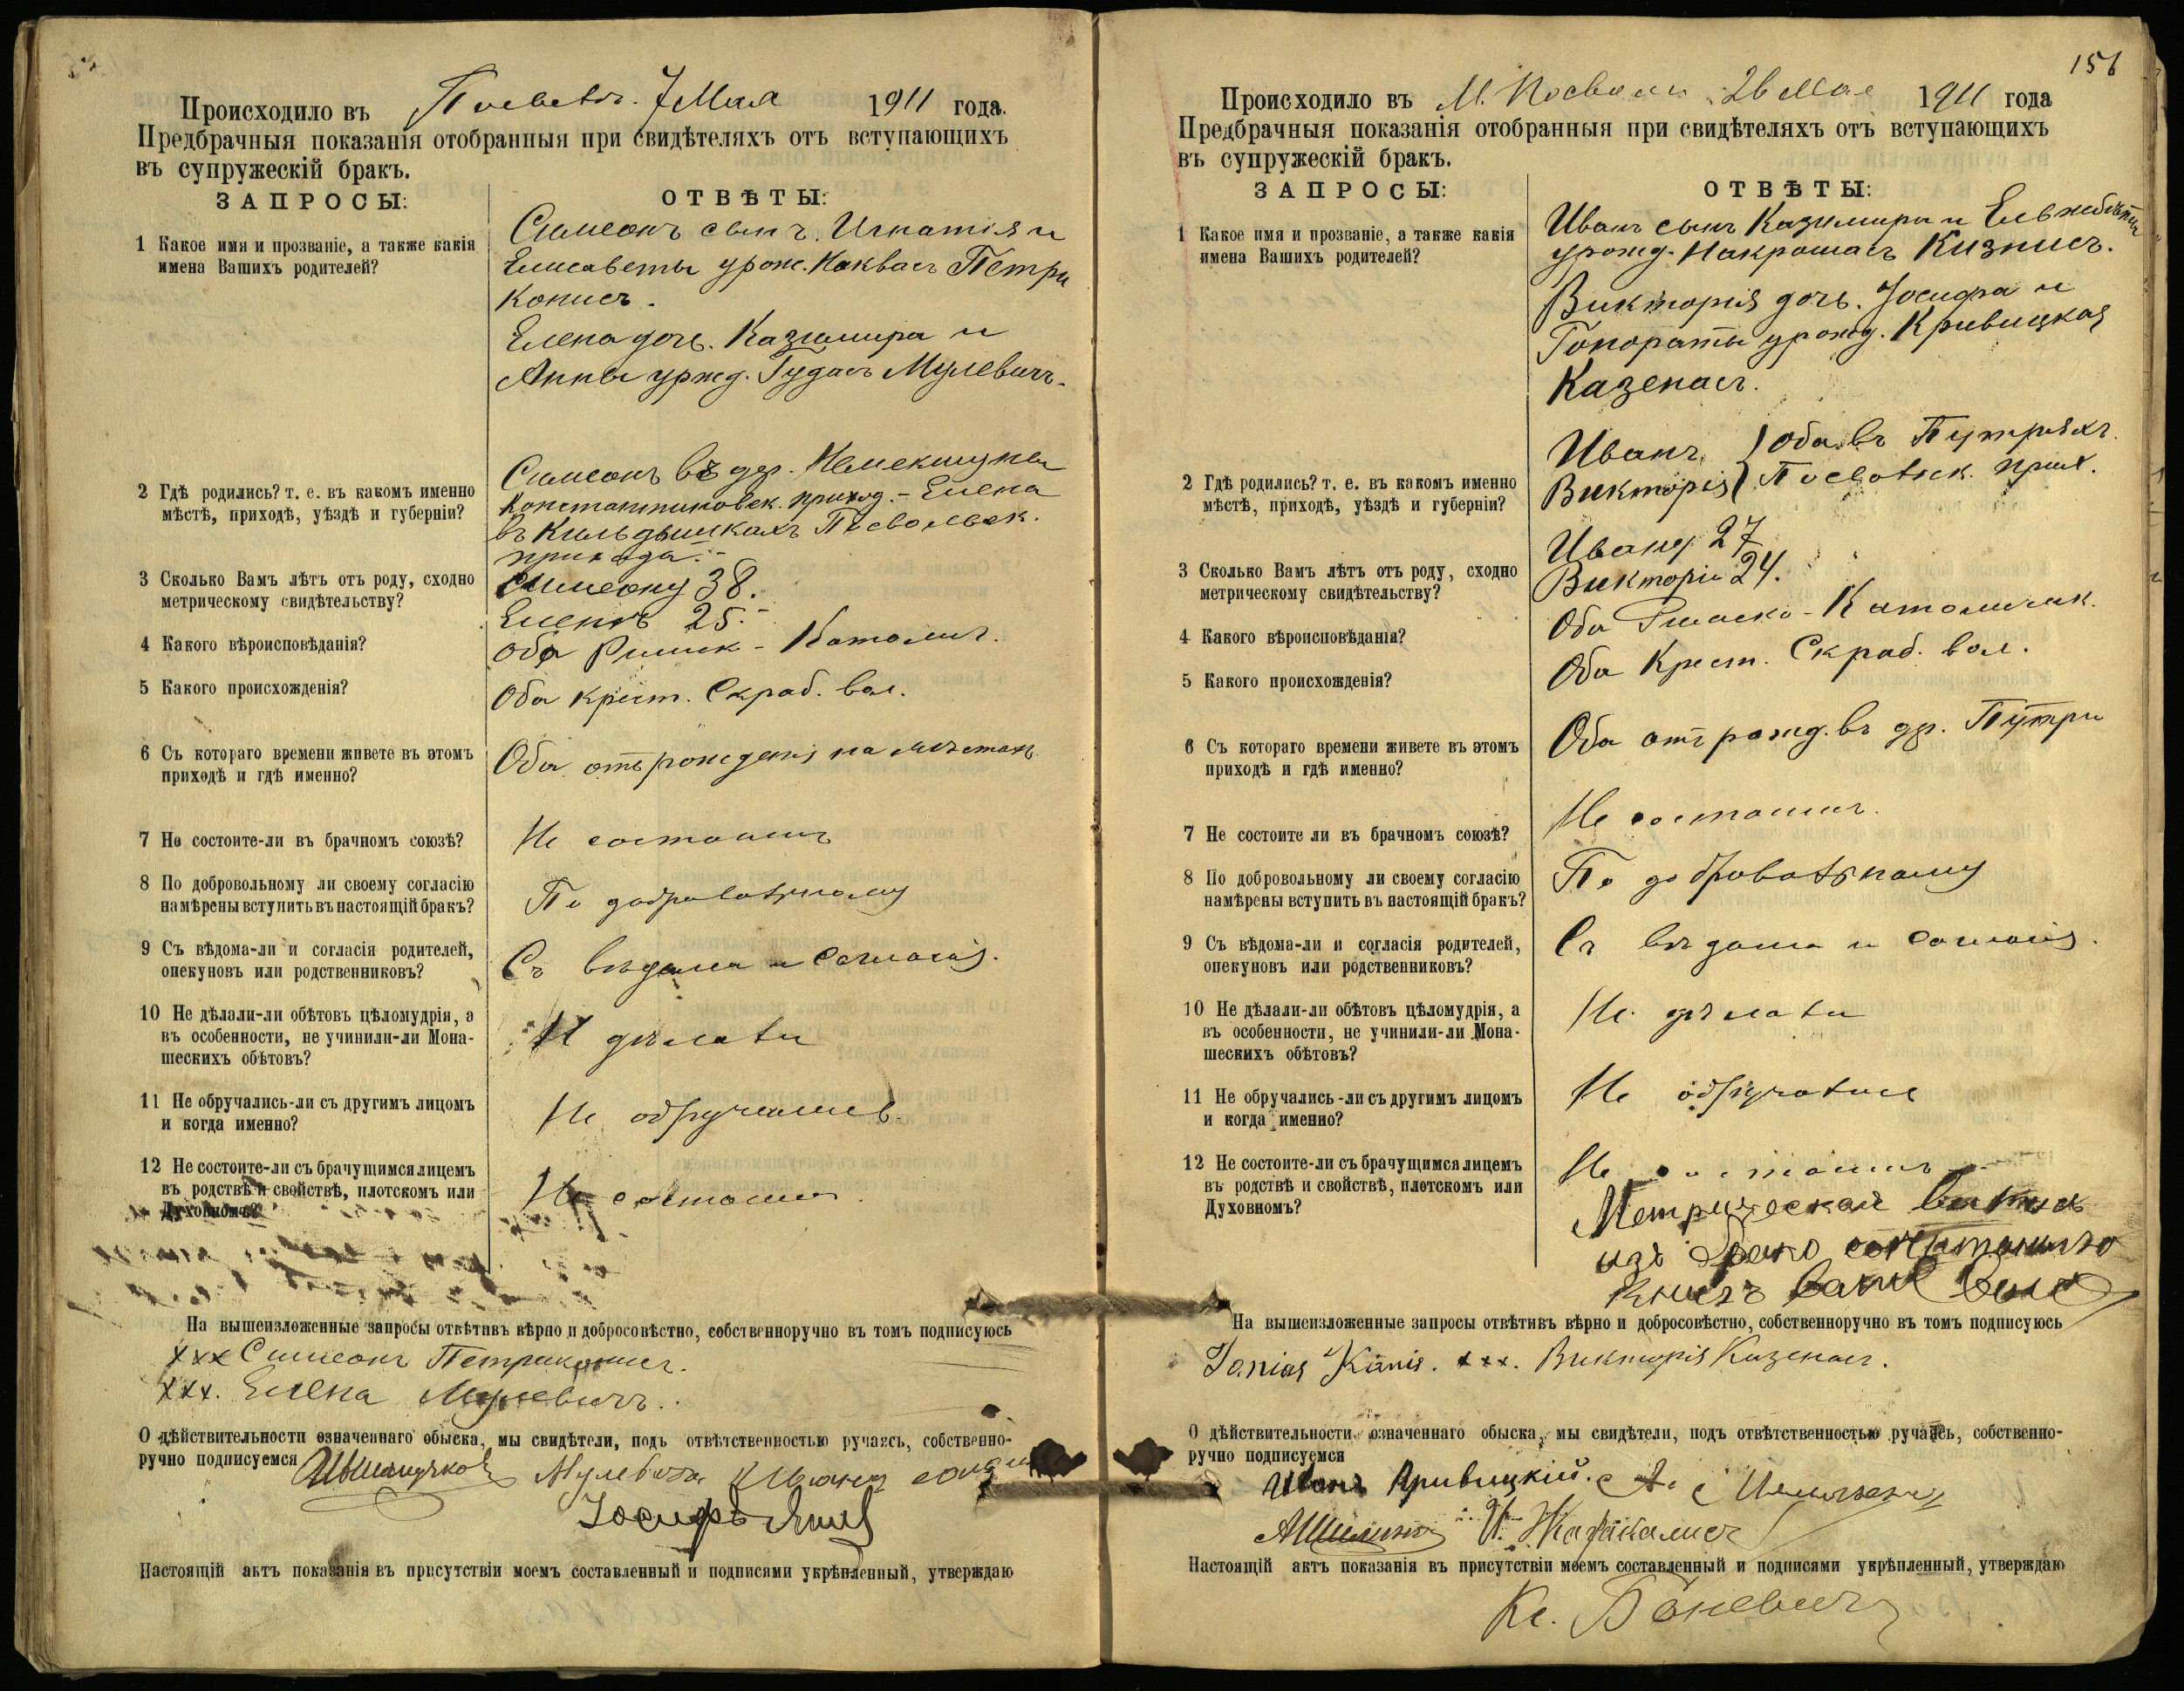 Происходило въ Посволь. 7 Мая 1911 года.
Предбрачныя показанія отобранныя при свидѣтеляхъ отъ вступающихъ
въ супружескій бракъ.
ЗАПРОСЫ:
ОТВѢТЫ:
1 Какое имя и прозваніе, а также какія
имена Вашихъ родителей?
Симеонъ сынъ. Игнатія и
Елисаветы урож. Наквасъ Петри
конисъ.
Елена дочь. Казимира и
Анны уржд. Гудасъ Мулевичъ.
2 Гдѣ родились? т. е. въ какомъ именно
мѣстѣ, приходѣ, уѣздѣ и губерніи?
Симеонъ въ дер.
Константиновск. приход. - Елена
въ Кильдишкахъ Посвольск.
прихода.
3 Сколько Вамъ лѣтъ отъ роду, сходно
метрическому свидѣтельству?
Симеону 38.
Еленѣ 25.
4 Какого вѣроисповѣданія?
Оба Римск - Католич.
5 Какого происхожденія?
Оба крест. Скраб. вол.
6 Съ котораго времени живете въ этомъ
приходѣ и гдѣ именно?
Оба отъ рожденія на мѣстахъ
7 Не состоите-ли въ брачномъ союзѣ?
Не состоимъ
8 По добровольному ли своему согласію
намѣрены вступить въ настоящій бракъ?
По добровольному
9 Съ вѣдома-ли и согласія родителей,
опекуновъ или родственниковъ?
Съ вѣдома и согласія.
10 Не дѣлали-ли обѣтовъ цѣломудрія, а
въ особенности, не учинили-ли Мона-
шескихъ обѣтовъ?
Н дѣлали
11 Не обручались-ли съ другимъ лицомъ
и когда именно?
Не обручались
12 Не состоите-ли съ брачущимся лицемъ
въ родствѣ и свойствѣ, плотскомъ или
Духовномъ?
Не состоимъ.
На вышеизложенные запросы отвѣтивъ вѣрно и добросовѣстно, собственноручно въ томъ подписуюсь
ххх Симеонъ Петриконисъ.
ххх. Елена Мулевичъ.
О дѣйствительности означеннаго обыска, мы свидѣтели, подъ отвѣтственностью ручаясь, собственно-
ручно подписуемся
Іосифъ
Настоящій актъ показанія въ присутствіи моемъ составленный и подписями укрѣпленный, утверждаю
156
Происходило въ М. Посволи 26 Мая 1911 года
Предбрачныя показанія отобранныя при свидѣтеляхъ отъ вступающихъ
въ супружескій бракъ.
ЗАПРОСЫ:
ОТВѢТЫ:
1 Какое имя и прозваніе, а также какія
имена Вашихъ родителей?
Иванъ сынъ Казимира и
урожд. Накрошасъ Кизнисъ.
Викторія дочь. Іосифа и
Гонораты урожд. Кривицкая
Казенасъ.
2 Гдѣ родились? т. е. въ какомъ именно
мѣстѣ, приходѣ, уѣздѣ и губерніи?
Иванъ } оба въ Путряхъ.
Викторія } Посвольск. прих.
3 Сколько Вамъ лѣтъ отъ роду, сходно
метрическому свидѣтельству?
Ивану 27
Викторіи 24.
4 Какого вѣроисповѣданія?
Оба Римско - Католическ.
5 Какого происхожденія?
Оба Крест. Скраб. вол.
6 Съ котораго времени живете въ этомъ
приходѣ и гдѣ именно?
Оба отъ рожд. въ др. Путри
7 Не состоите ли въ брачномъ союзѣ?
Не состоимъ.
8 По добровольному ли своему согласію
намѣрены вступить въ настоящій бракъ?
По добровольному
9 Съ вѣдома-ли и согласія родителей,
опекуновъ или родственниковъ?
Съ вѣдома и согласія.
10 Не дѣлали-ли обѣтовъ цѣломудрія, а
въ особенности, не учинили-ли Мона-
шескихъ обѣтовъ?
Не дѣлали
11 Не обручались-ли съ другимъ лицомъ
и когда именно?
Не обручались
12 Не состоите-ли съ брачущимся лицемъ
въ родствѣ и свойствѣ, плотскомъ или
Духовномъ?
Не состоимъ
Метрической
изъ
На вышеизложенные запросы отвѣтивъ вѣрно и добросовѣстно, собственноручно въ томъ подписуюсь
ххх. Викторія Казенасъ.
О дѣйствительности означеннаго обыска, мы свидѣтели, подъ отвѣтственностью ручаясь, собственно-
ручно подписуемся
Иванъ Кривицкій.
Настоящій актъ показанія въ присутствіи моемъ составленный и подписями укрѣпленный, утверждаю
Кс.